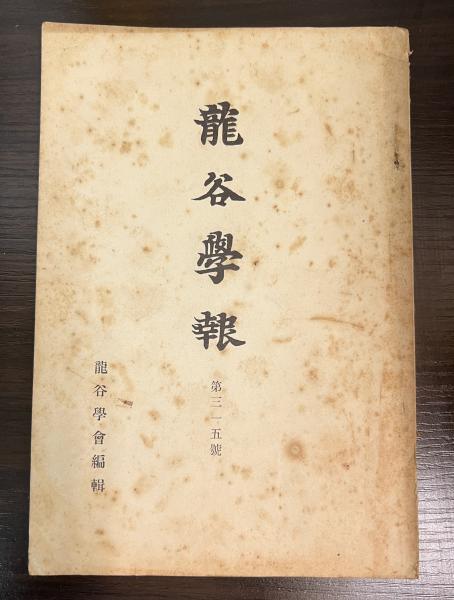 龍谷學報
第三一五號
龍谷學會編輯